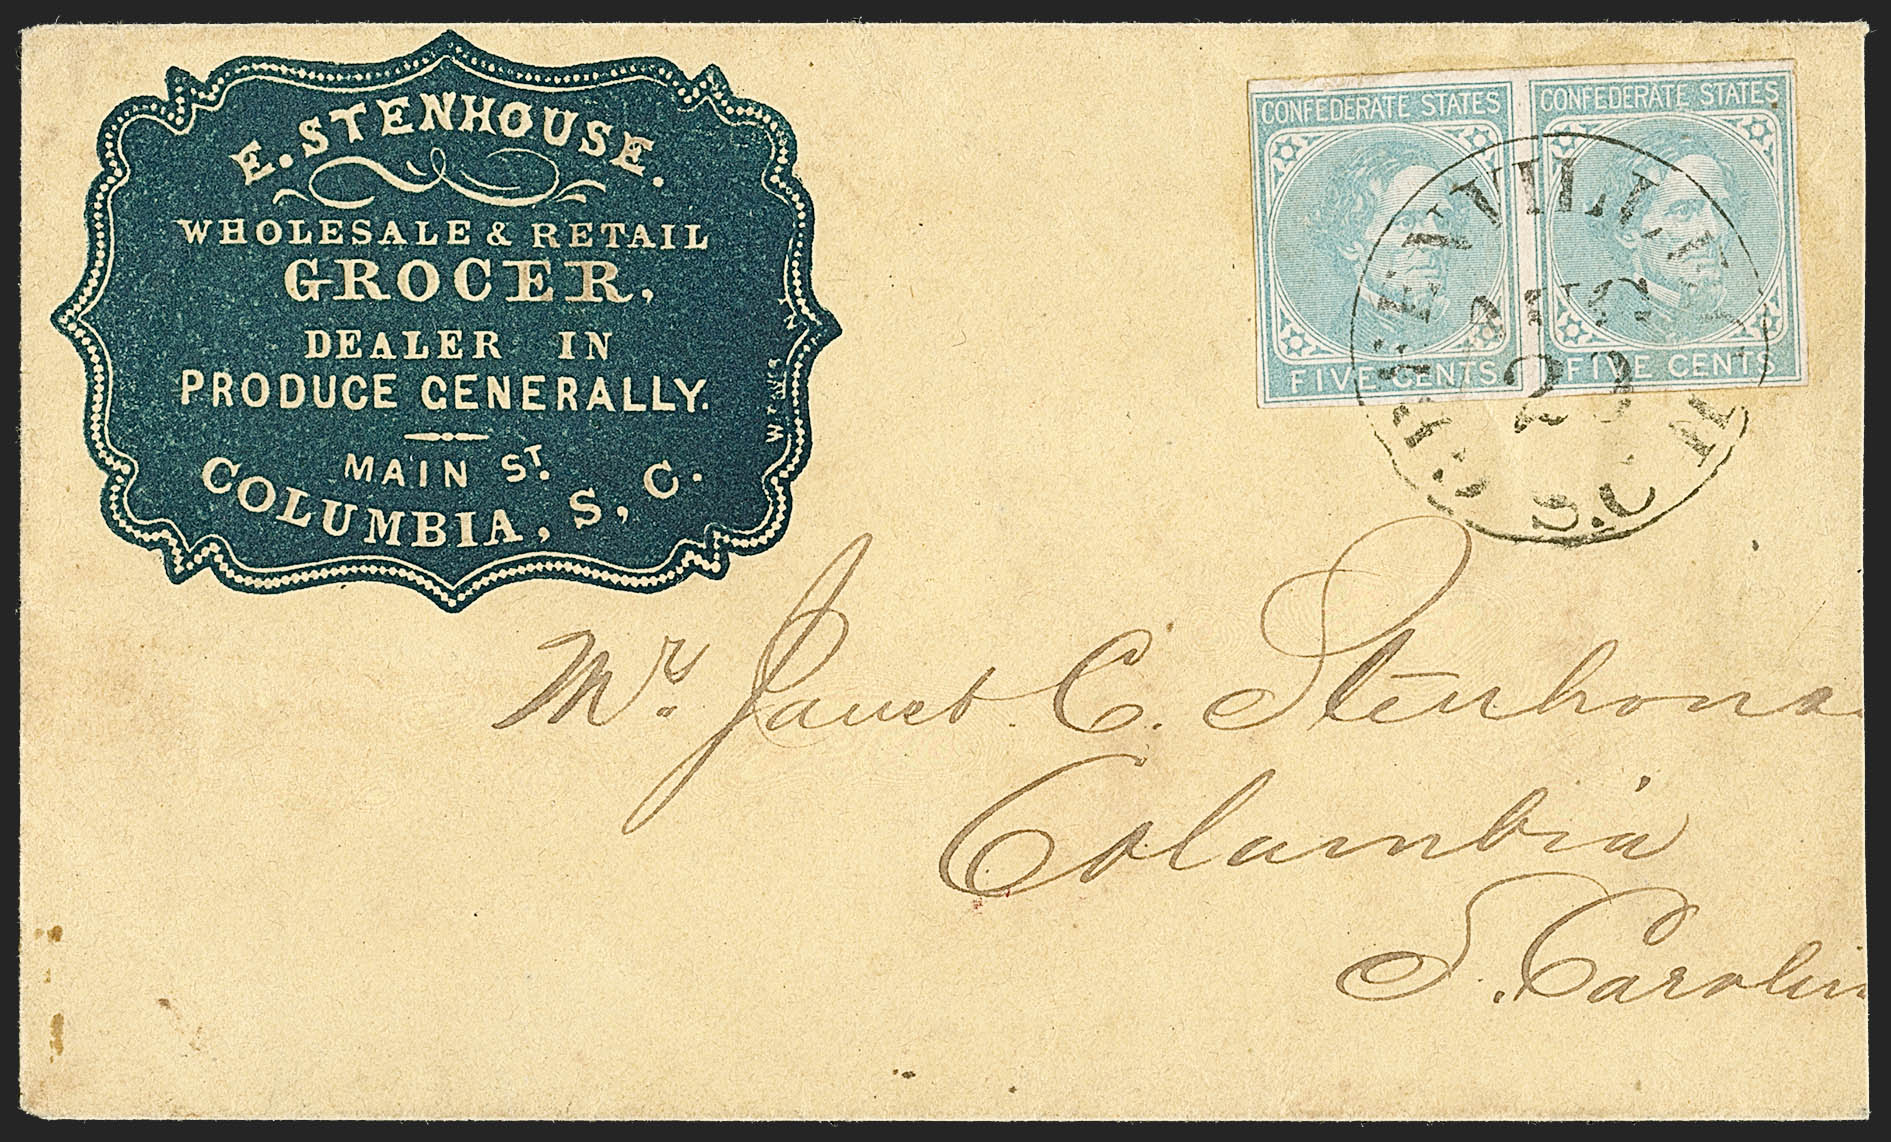 E. STENHOUSE.
WHOLESALE & RETAIL
GROCER,
DEALER IN
PRODUCE GENERALLY.
MAIN ST.
COLUMBIA, S, C.
CONFEDERATE STATES
FIVE CENTS
CONFEDERATE STATES
FIVE CENTS
GREENVILLE C.H.
AUG
29
S.C
Mr. Janet C. Stenhous
Columbia
S. Carolin